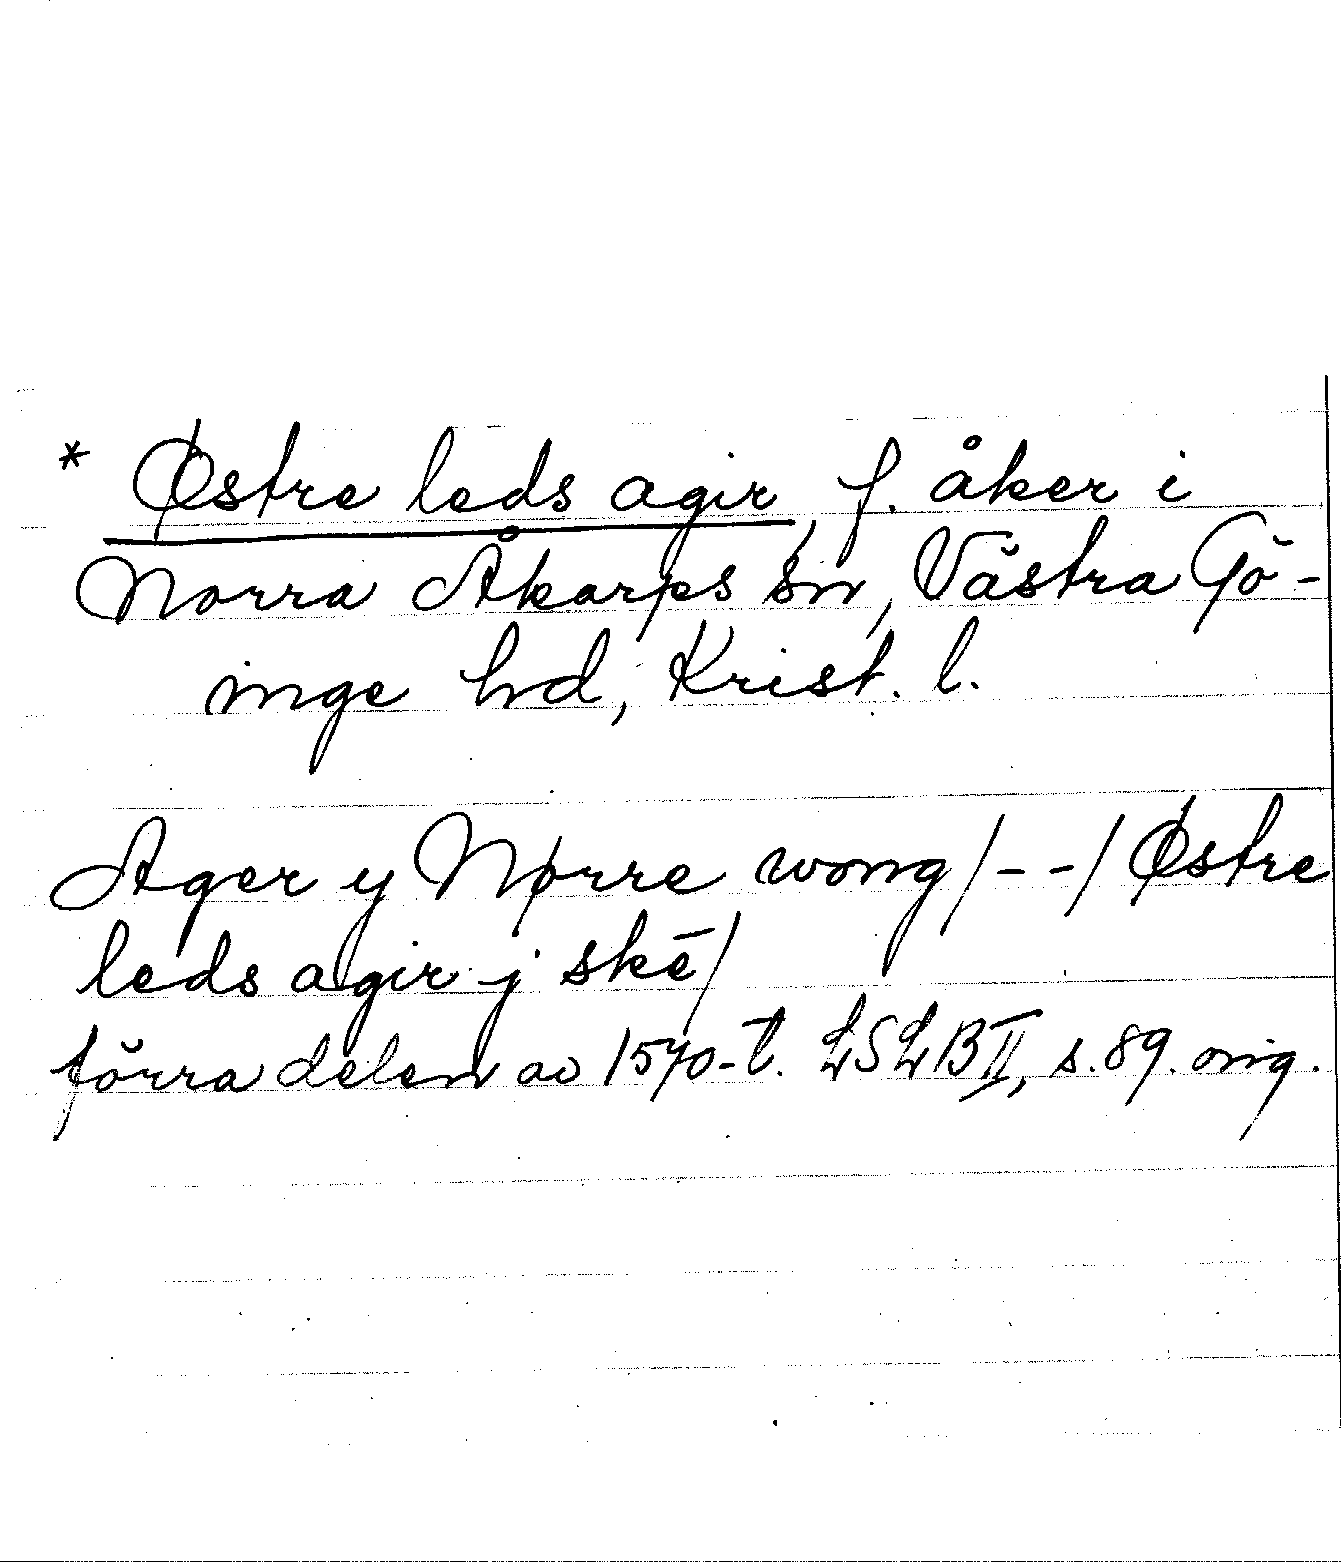 * Østre leds agir, f. åker i
Norra Åkarps sn, Västra Gö-
inge hd, Krist. l.
Ager y Nørre wong/--/Østre
leds agir j skē/
förra delen av 1570-t. LSLB II, s. 89. orig.